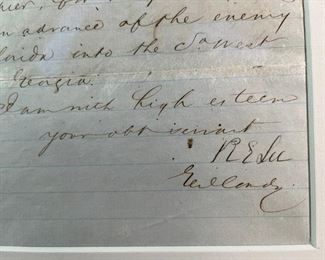 an advance of the enemy
into the So West
Georgia.
I am with high esteem
your obt servant
R E Lee
Genl Comdg.